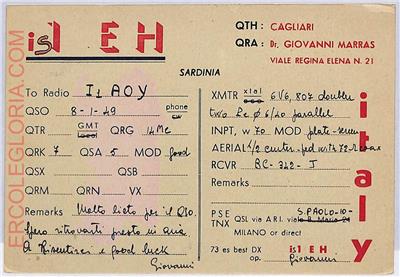 is1 EH
QTH: CAGLIARI
QRA: Dr. GIOVANNI MARRAS
VIALE REGINA ELENA N. 21
SARDINIA
To Radio I1 AOY
QSO 8-1-49 phone cw
QTR GMT local QRG 14 Mc
QRK 7 QSA 5 MOD good
QSX QSB
QRM QRN VX
Remarks Molto lieto per il QSO.
Spero ritrovarti presto in aria
A Risentirci e good luck
Giovanni
XMTR xtal eco 6V6, 807 double
two parallel
INPT, w 70 MOD plate-screen
AERIAL 1/2 center-fed with
RCVR BC-342-J
Remarks
PSE TNX QSL via A R I. via S. PAOLO-10-
B. Mario 24
MILANO or direct
73 es best DX is1 EH
op. Giovanni
italy
ERCOLEGLORIA.COM